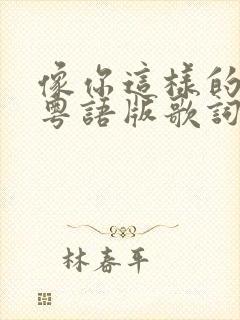 像你這樣的
粵語版歌詞
林春平